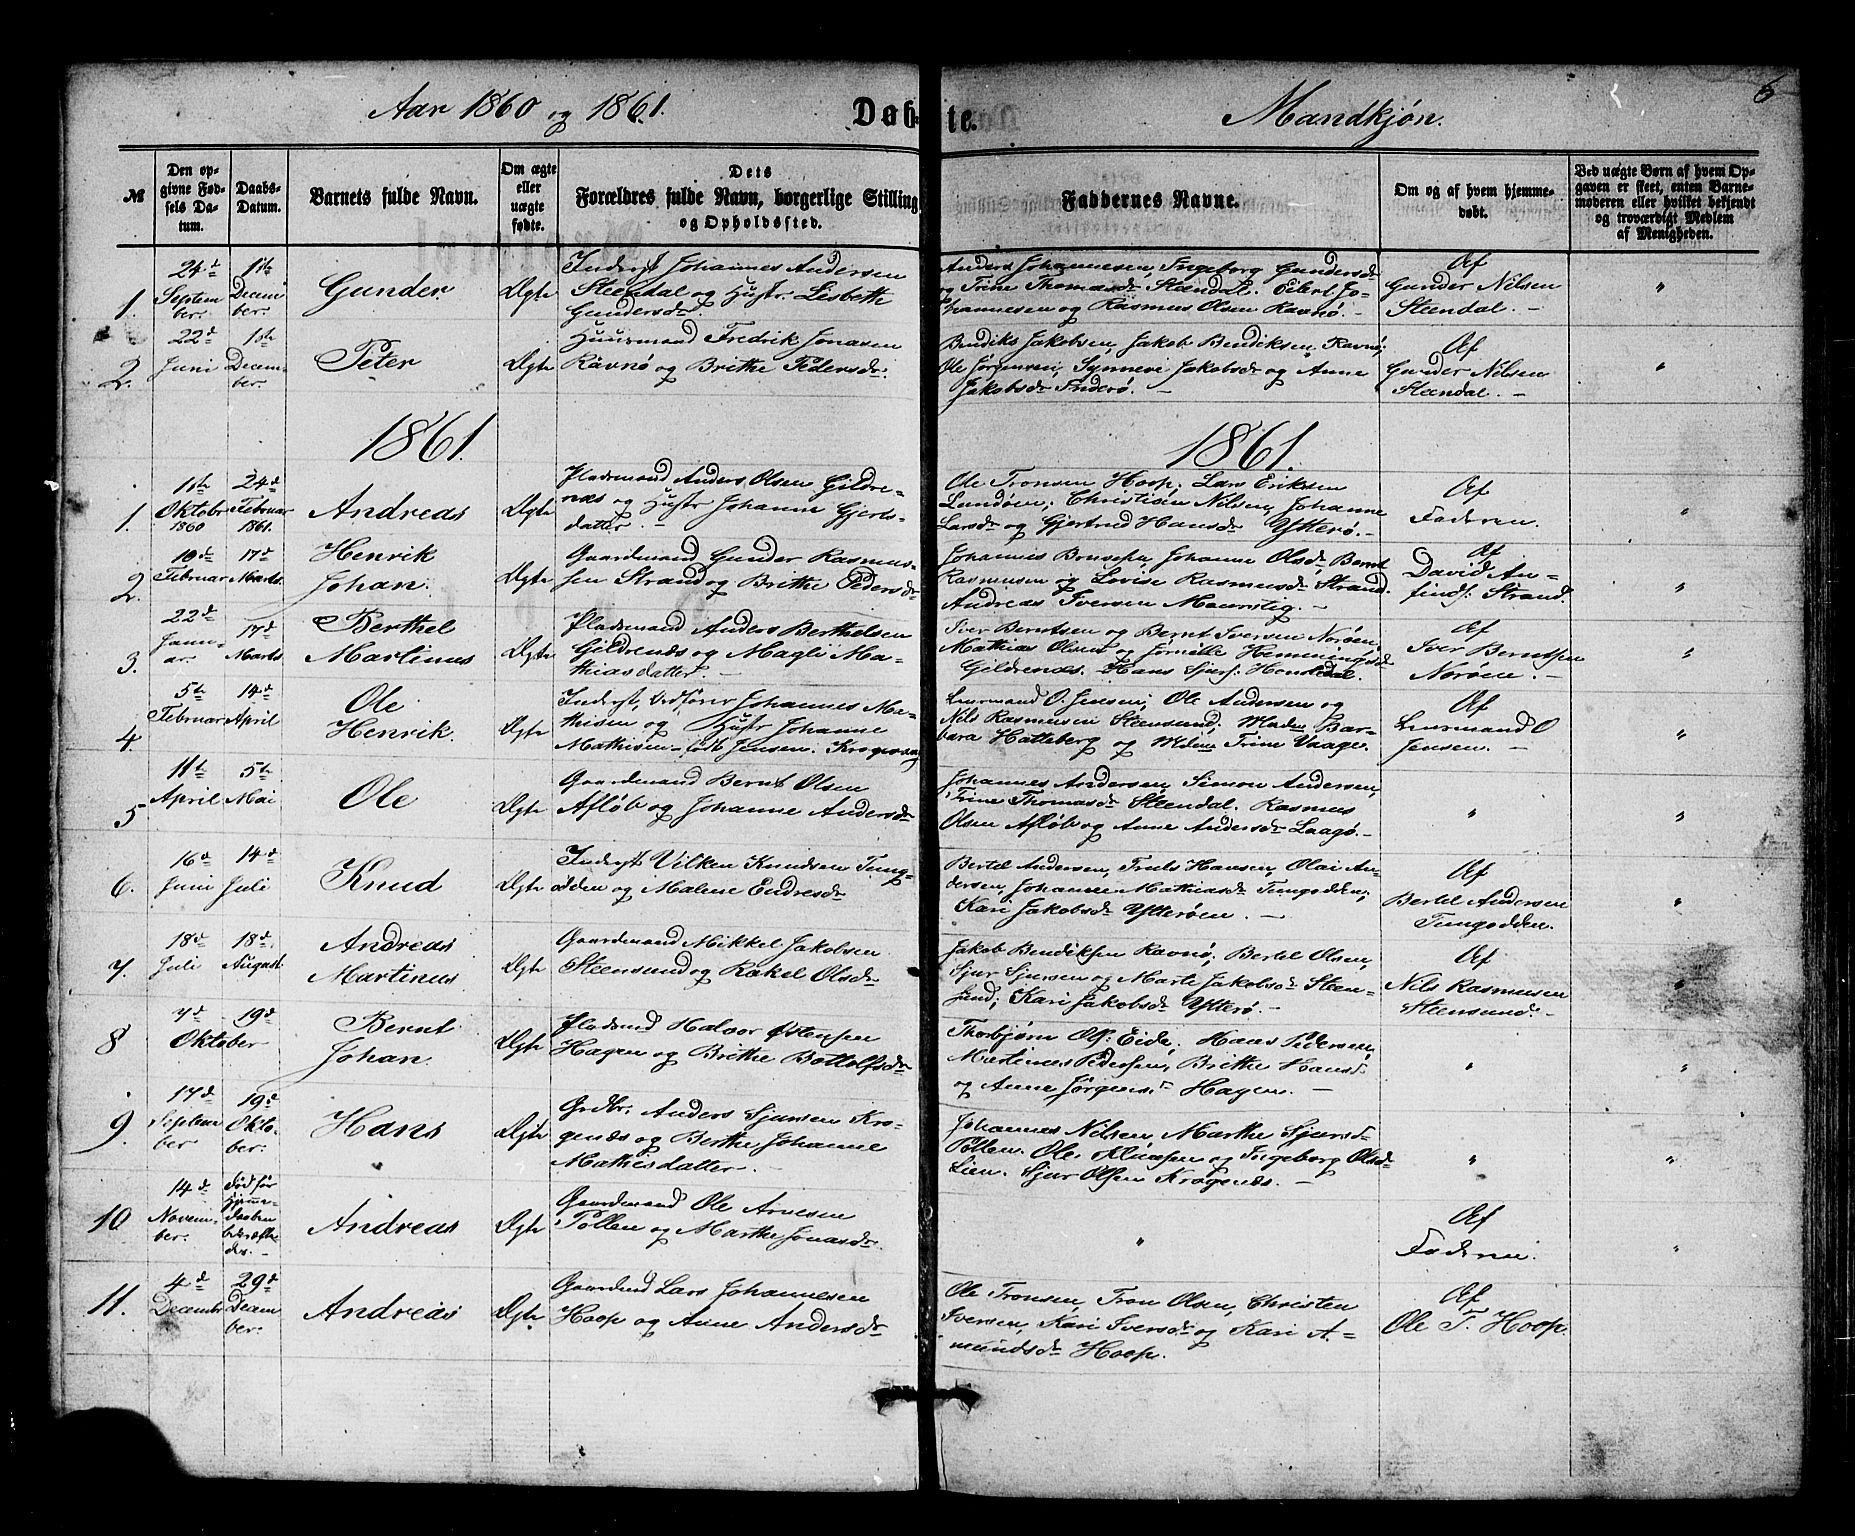 Aar 1860 og 1861.
Døbte.
Mandkjøn.
6
№
Den opgivne Fødsels Datum.
Daabs-Datum.
Barnets fulde Navn.
Om ægte eller uægte fødte.
Dets Forældres fulde Navn, borgerlige Stilling og Opholdssted.
Faddernes Navne.
Om og af hvem hjemmedøbt.
Ved uægte Børn af hvem Opgaven er skeet, enten Barnemoderen eller hvilket bekjendt og troværdigt Medlem af Menigheden.
1.
24de September.
1ste December.
Gunder.
Ægte
Inderst Johannes Andersen
Steendal og Hustr. Lisbeth
Gundersdr.
Anders Johannesen, Ingeborg Gundersdr
og Trine Thomasdr Steendal. Eilert Jo-
hannesen og Rasmus Olsen Ravnø. —
Af
Gunder Nilsen
Steendal. —
"
2.
22de Juni
1ste December.
Peter
Ægte
Huusmand Fredrik Jonasen
Ravnø og Brithe Pedersdr.
Bendiks Jakobsen, Jakob Bendiksen, Ravnø,
Ole Jørgensen, Synnevi Jakobsdr og Anne
Jakobsdr Inderø. —
Af
Gunder Nilsen
Steendal. —
"
1861.
1861.
1.
11te Oktobr 1860
24de Februar 1861.
Andreas
Ægte
Pladsmand Anders Olsen Gildre-
næs og Hustr Johanne Gjerts-
datter. —
Ole Tronsen Hoop; Lars Eriksen
Lundøen; Christian Nilsen, Johanne
Larsdr og Gjertrud Hansdr Ytterø. —
Af
Faderen.
"
2.
19de Februar
17de Marts
Henrik
Johan.
Ægte
Gaardmand Gunder Rasmus-
sen Strand og Brithe Pedersdr
Johannes Johanne Olsdr, Bernt
Rasmusen og Lovise Rasmusdr Strand.
Andreas Iversen —
Af
David An-
finds. Strand.
"
3.
22de Januar.
17de Marts
Berthel
Martinus
Ægte
Pladsmand Anders Berthelsen
Gildrenæs og Magli Ma-
thiasdatter. —
Iver Berntsen og Bernt Iversen Norøen,
Mathias Olsen og Henningsdr
Gildrenæs. Hans Sjurs.
Af
Iver Berntsen
Norøen. —
"
4
5te Februar
14de April
Ole
Henrik.
Ægte
Inderst, Johannes Ma-
thisen og Hustr Johanne
Mathisen født Jensen. Krogsvaag
Lensmand O. Jensen; Ole Andersen og
Nils Rasmusen Steensund; Madm Bar-
bara Hatleberg og Mdm Trine Vaage.
Af
Lensmand O
Jensen. —
"
5
11te April
5te Mai
Ole
Ægte
Gaardmand Bernt Olsen
Afløb og Johanne Andersdr
Johannes Andersen, Simon Andersen,
Trine Thomasdr Steendal. Rasmus
Olsen Afløb og Anne Andersdr Laagø. —
"
"
6.
16de Juni
14de Juli
Knud
Ægte
Inderst Vilken Knudsen Tung-
odden og Malene Endresdr
Bertel Andersen, Truls Hansen, Olai An-
dersen, Johanne Mathiasdr Tungodden;
Kari Jakobsdr Ytterøen. —
Af
Bertel Andersen
Tungodden.
"
7.
18de Juli
18de August.
Andreas
Martinus
Ægte
Gaardmand Mikkel Jakobsen
Steensund og Rakel Olsdr
Jakob Bendiksen Ravnø, Bertel Olsen,
Sjur Sjursen og Marte Jakobsdr Steen-
sund; Kari Jakobsdr Ytterø. —
Af
Nils Rasmusen
Steensund. —
"
8
7de Oktober
19de
Bernt
Johan.
Ægte
Pladsmd Halvor Østensen
Hagen og Brithe Bottolfsdr
Thorbjørn Ols. Eide; Hans Pedersen,
Martines Pedersen, Brithe Hansd.
og Anne Jørgensdr Hagen. —
"
"
9.
17de September
19de Oktober.
Hans
Ægte
Grdbr. Anders Sjursen Kro-
genæs og Berthe Johanne
Mathiesdatter. —
Johannes Nilsen, Marthe Sjursdr
Pollen. Ole og Ingeborg Olsdr
Lien. Sjur Olsen Krogenæs. —
"
"
10.
14de November.
Død før
Hjemme-
daaben
bekræfte-
des. —
Andreas
Ægte
Gaardmand Ole Arnesen
Pollen og Marthe Jonasdr.
"
Af
Faderen.
"
11.
4de Decembr
29de December.
Andreas
Ægte
Gaardmd Lars Johannesen
Hoop og Anne Andersdr
Ole Tronsen, Tron Olsen, Christen
Iversen, Kari Iversdr og Kari A-
mundsdr Hoop.
Af
Ole T. Hoop.